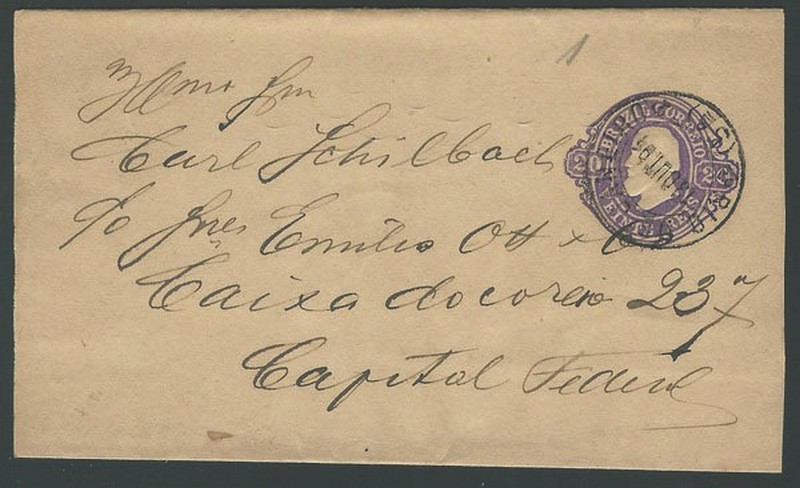 1
Carl Schilbach
c/o Emilio Ott & Co
Caixa do correio 237
Capital Federal
BRAZIL CORREIO
20 20
VEINTE REIS